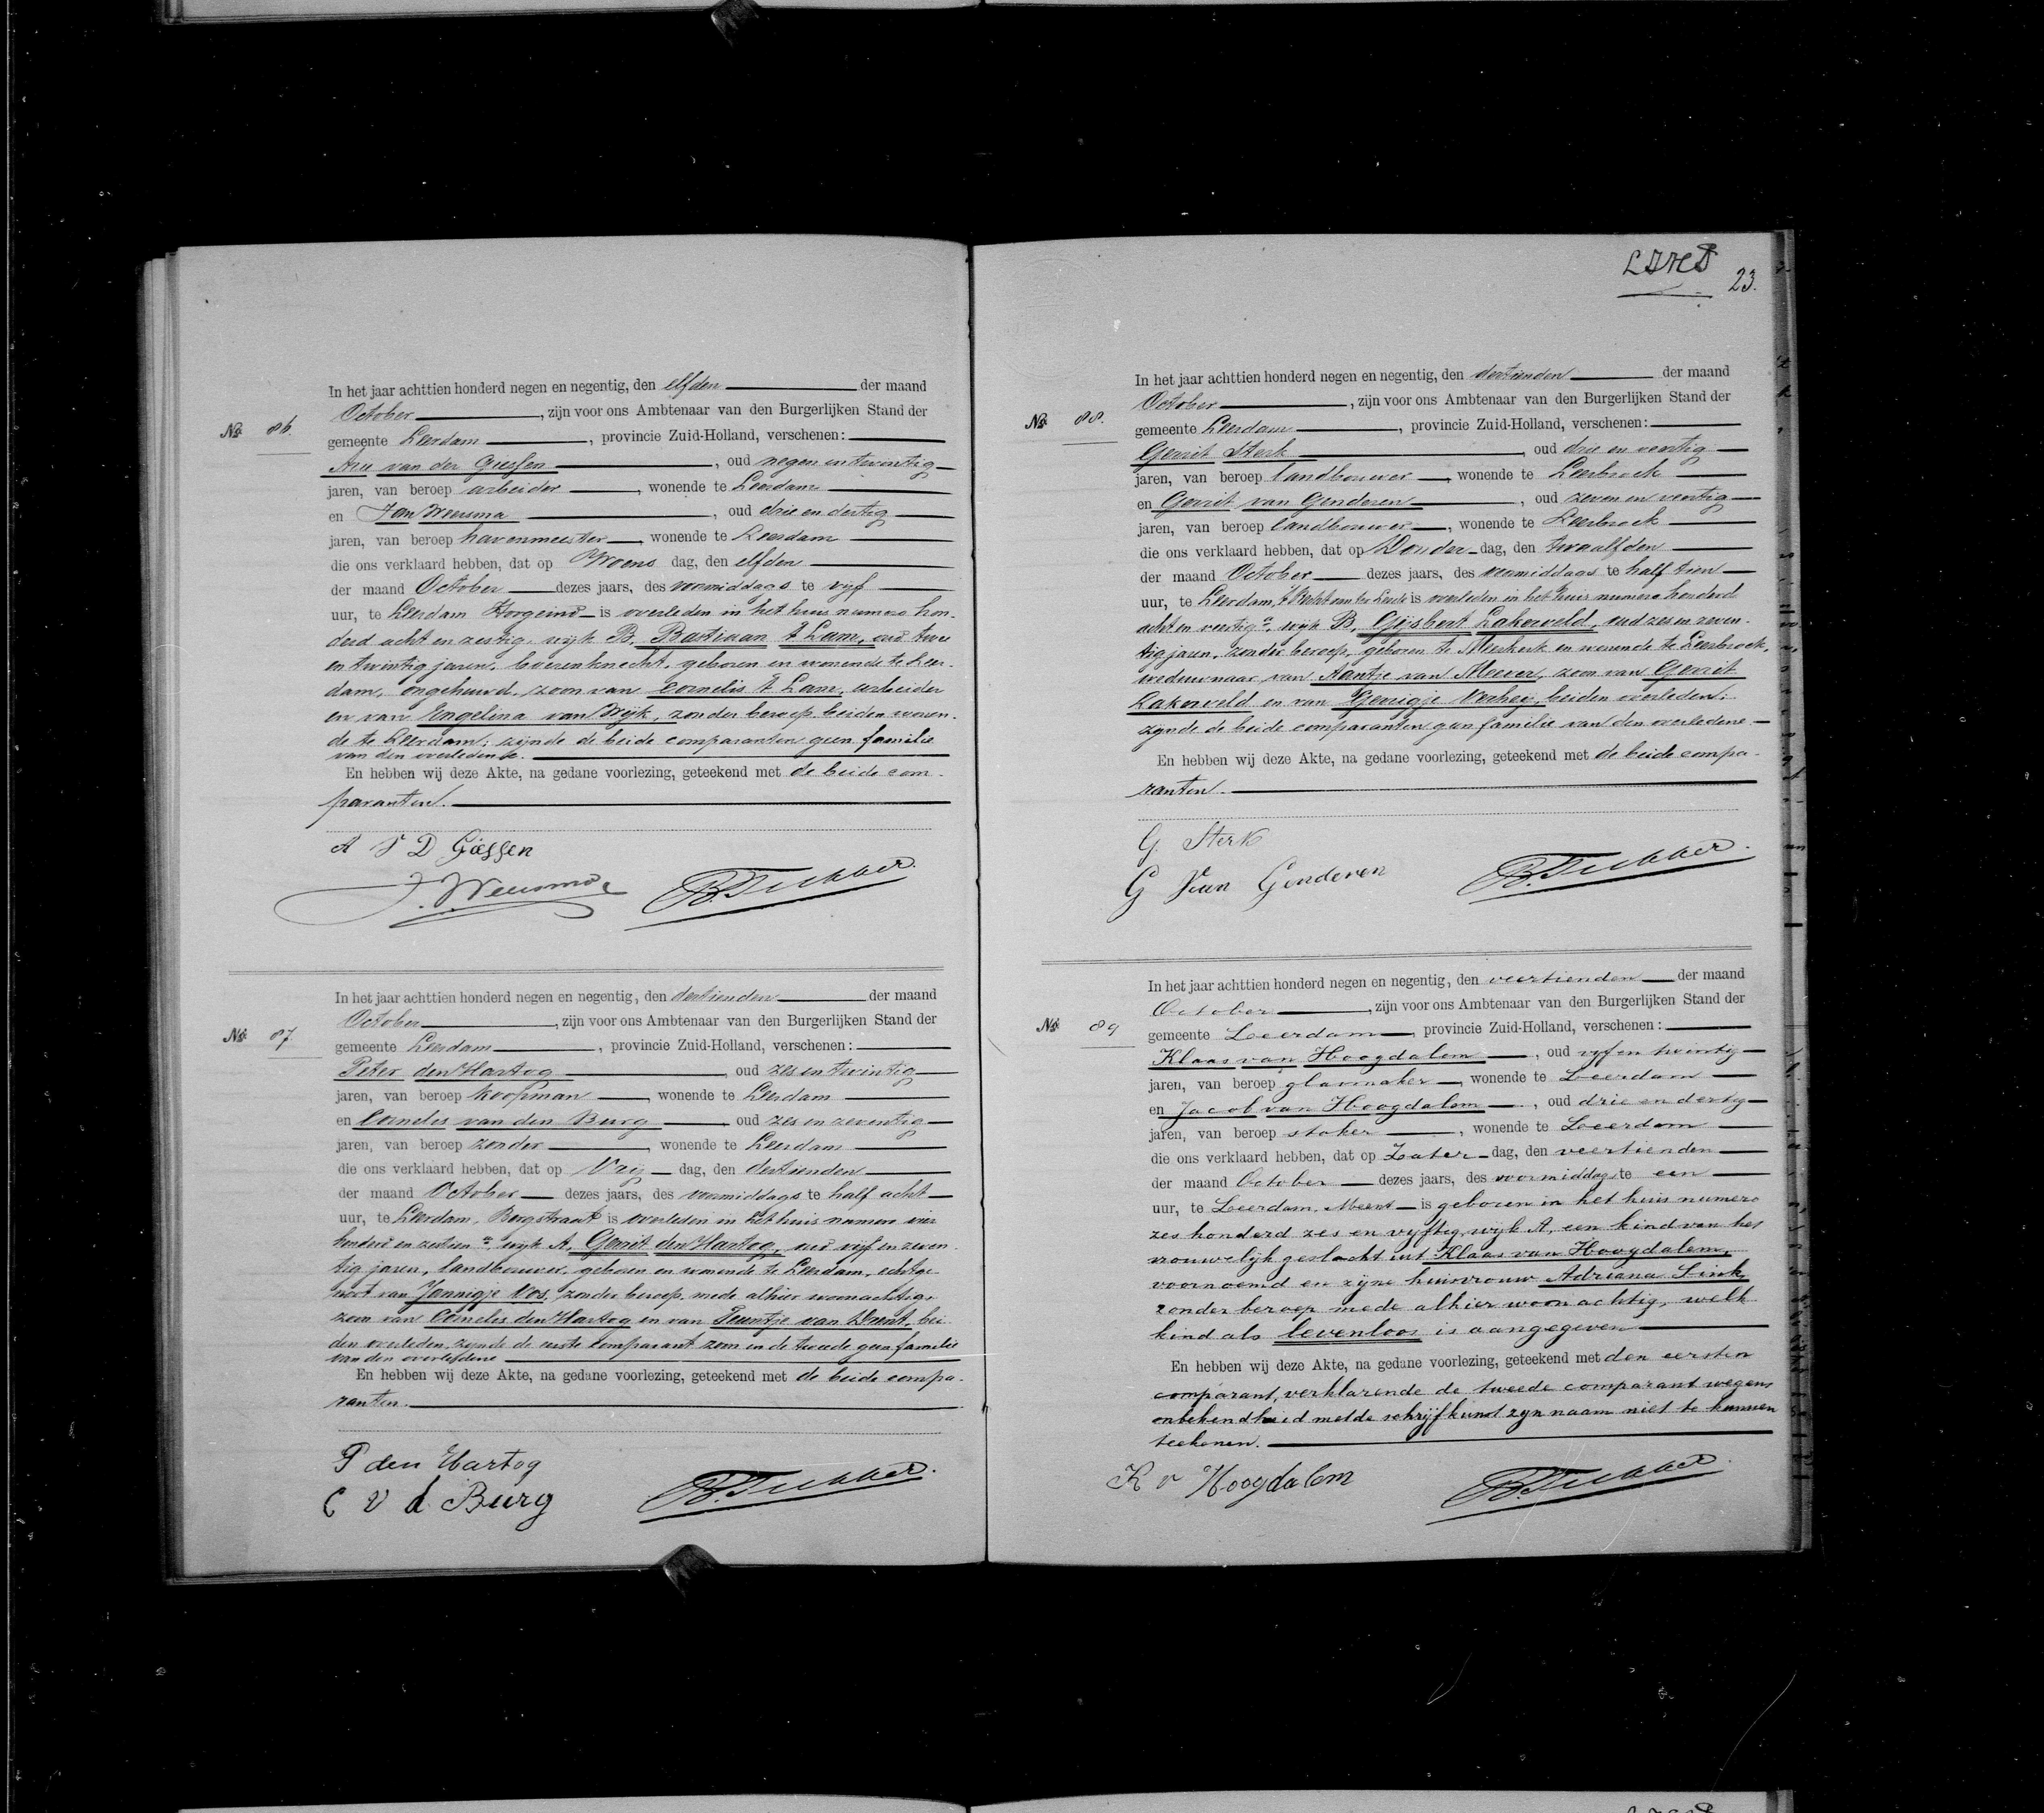 23.
No. 86.
In het jaar achttien honderd negen en negentig, den elfden der maand
October, zijn voor ons Ambtenaar van den Burgerlijken Stand der
gemeente Leerdam, provincie Zuid-Holland, verschenen:
Arie van der Giessen, oud negen en twintig
jaren, van beroep arbeider, wonende te Leerdam
en Jan Weersma, oud drie en dertig
jaren, van beroep havenmeester, wonende te Leerdam
die ons verklaard hebben, dat op Woensdag, den elfden
der maand October dezes jaars, des voormiddags te vijf
uur, te Leerdam Horgeind is overleden in het huis numero hon-
derd acht en zestig, wijk B, Bastiaan 't Lam, oud twee
en twintig jaren, boerenknecht, geboren en wonende te Leer-
dam, ongehuwd, zoon van Cornelis 't Lam, arbeider
en van Engelina van Wijk, zonder beroep beiden wonen-
de te Leerdam; zijnde de beide comparanten geen familie
van den overledene.
En hebben wij deze Akte, na gedane voorlezing, geteekend met de beide com-
paranten.
A V D Giessen
J. Weersma
No. 87.
In het jaar achttien honderd negen en negentig, den dertienden der maand
October, zijn voor ons Ambtenaar van den Burgerlijken Stand der
gemeente Leerdam, provincie Zuid-Holland, verschenen:
Peter den Hartog, oud zes en twintig
jaren, van beroep koopman, wonende te Leerdam
en Cornelis van den Burg, oud zes en zeventig
jaren, van beroep zonder, wonende te Leerdam
die ons verklaard hebben, dat op Vrijdag, den dertienden
der maand October dezes jaars, des voormiddags te half acht
uur, te Leerdam, Bergstraat is overleden in het huis numero vier
honderd en zestien a, wijk A, Gerrit den Hartog, oud vijf en zeven-
tig jaren, landbouwer, geboren en wonende te Leerdam, echtge-
noot van Jannigje Vos, zonder beroep, mede alhier woonachtig,
zoon van Cornelis den Hartog en van Teuntje van Drent, bei-
den overleden, zijnde de eerste comparant zoon en de tweede geen familie
van den overledene
En hebben wij deze Akte, na gedane voorlezing, geteekend met de beide compa-
ranten.
P den Hartog
C v d Burg
No. 88.
In het jaar achttien honderd negen en negentig, den dertienden der maand
October, zijn voor ons Ambtenaar van den Burgerlijken Stand der
gemeente Leerdam, provincie Zuid-Holland, verschenen:
Gerrit Sterk, oud drie en veertig
jaren, van beroep landbouwer, wonende te Leerbroek
en Gerrit van Genderen, oud zeven en veertig
jaren, van beroep landbouwer, wonende te Leerbroek
die ons verklaard hebben, dat op Donderdag, den twaalfden
der maand October dezes jaars, des voormiddags te half tien
uur, te Leerdam, is overleden in het huis numero honderd
acht en veertig a, wijk B, Gijsbert Lakerveld, oud zes en zeven-
tig jaren, zonder beroep, geboren te Meerkerk en wonende te Leerbroek,
weduwnaar van Aantje van Meever, zoon van Gerrit
Lakerveld en van Gerrigje Verheij, beiden overleden;
zijnde de beide comparanten geen familie van den overledene
En hebben wij deze Akte, na gedane voorlezing, geteekend met de beide compa-
ranten.
G. Sterk
G van Genderen
No. 89
In het jaar achttien honderd negen en negentig, den veertienden der maand
October, zijn voor ons Ambtenaar van den Burgerlijken Stand der
gemeente Leerdam, provincie Zuid-Holland, verschenen:
Klaas van Hoogdalem, oud vijf en twintig
jaren, van beroep glasmaker, wonende te Leerdam
en Jacob van Hoogdalem, oud drie en dertig
jaren, van beroep stoker, wonende te Leerdam
die ons verklaard hebben, dat op Zaterdag, den veertienden
der maand October dezes jaars, des voormiddags te een
uur, te Leerdam, Meent is geboren in het huis numero
zes honderd zes en vijftig, wijk A, een kind van het
vrouwelijk geslacht uit Klaas van Hoogdalem,
voornoemd en zijne huisvrouw Adriana Sink,
zonder beroep mede alhier woonachtig, welk
kind als levenloos is aangegeven
En hebben wij deze Akte, na gedane voorlezing, geteekend met den eersten
comparant, verklarende de tweede comparant wegens
onbekendheid met de schrijfkunst zijn naam niet te kunnen
teekenen.
K v Hoogdalem